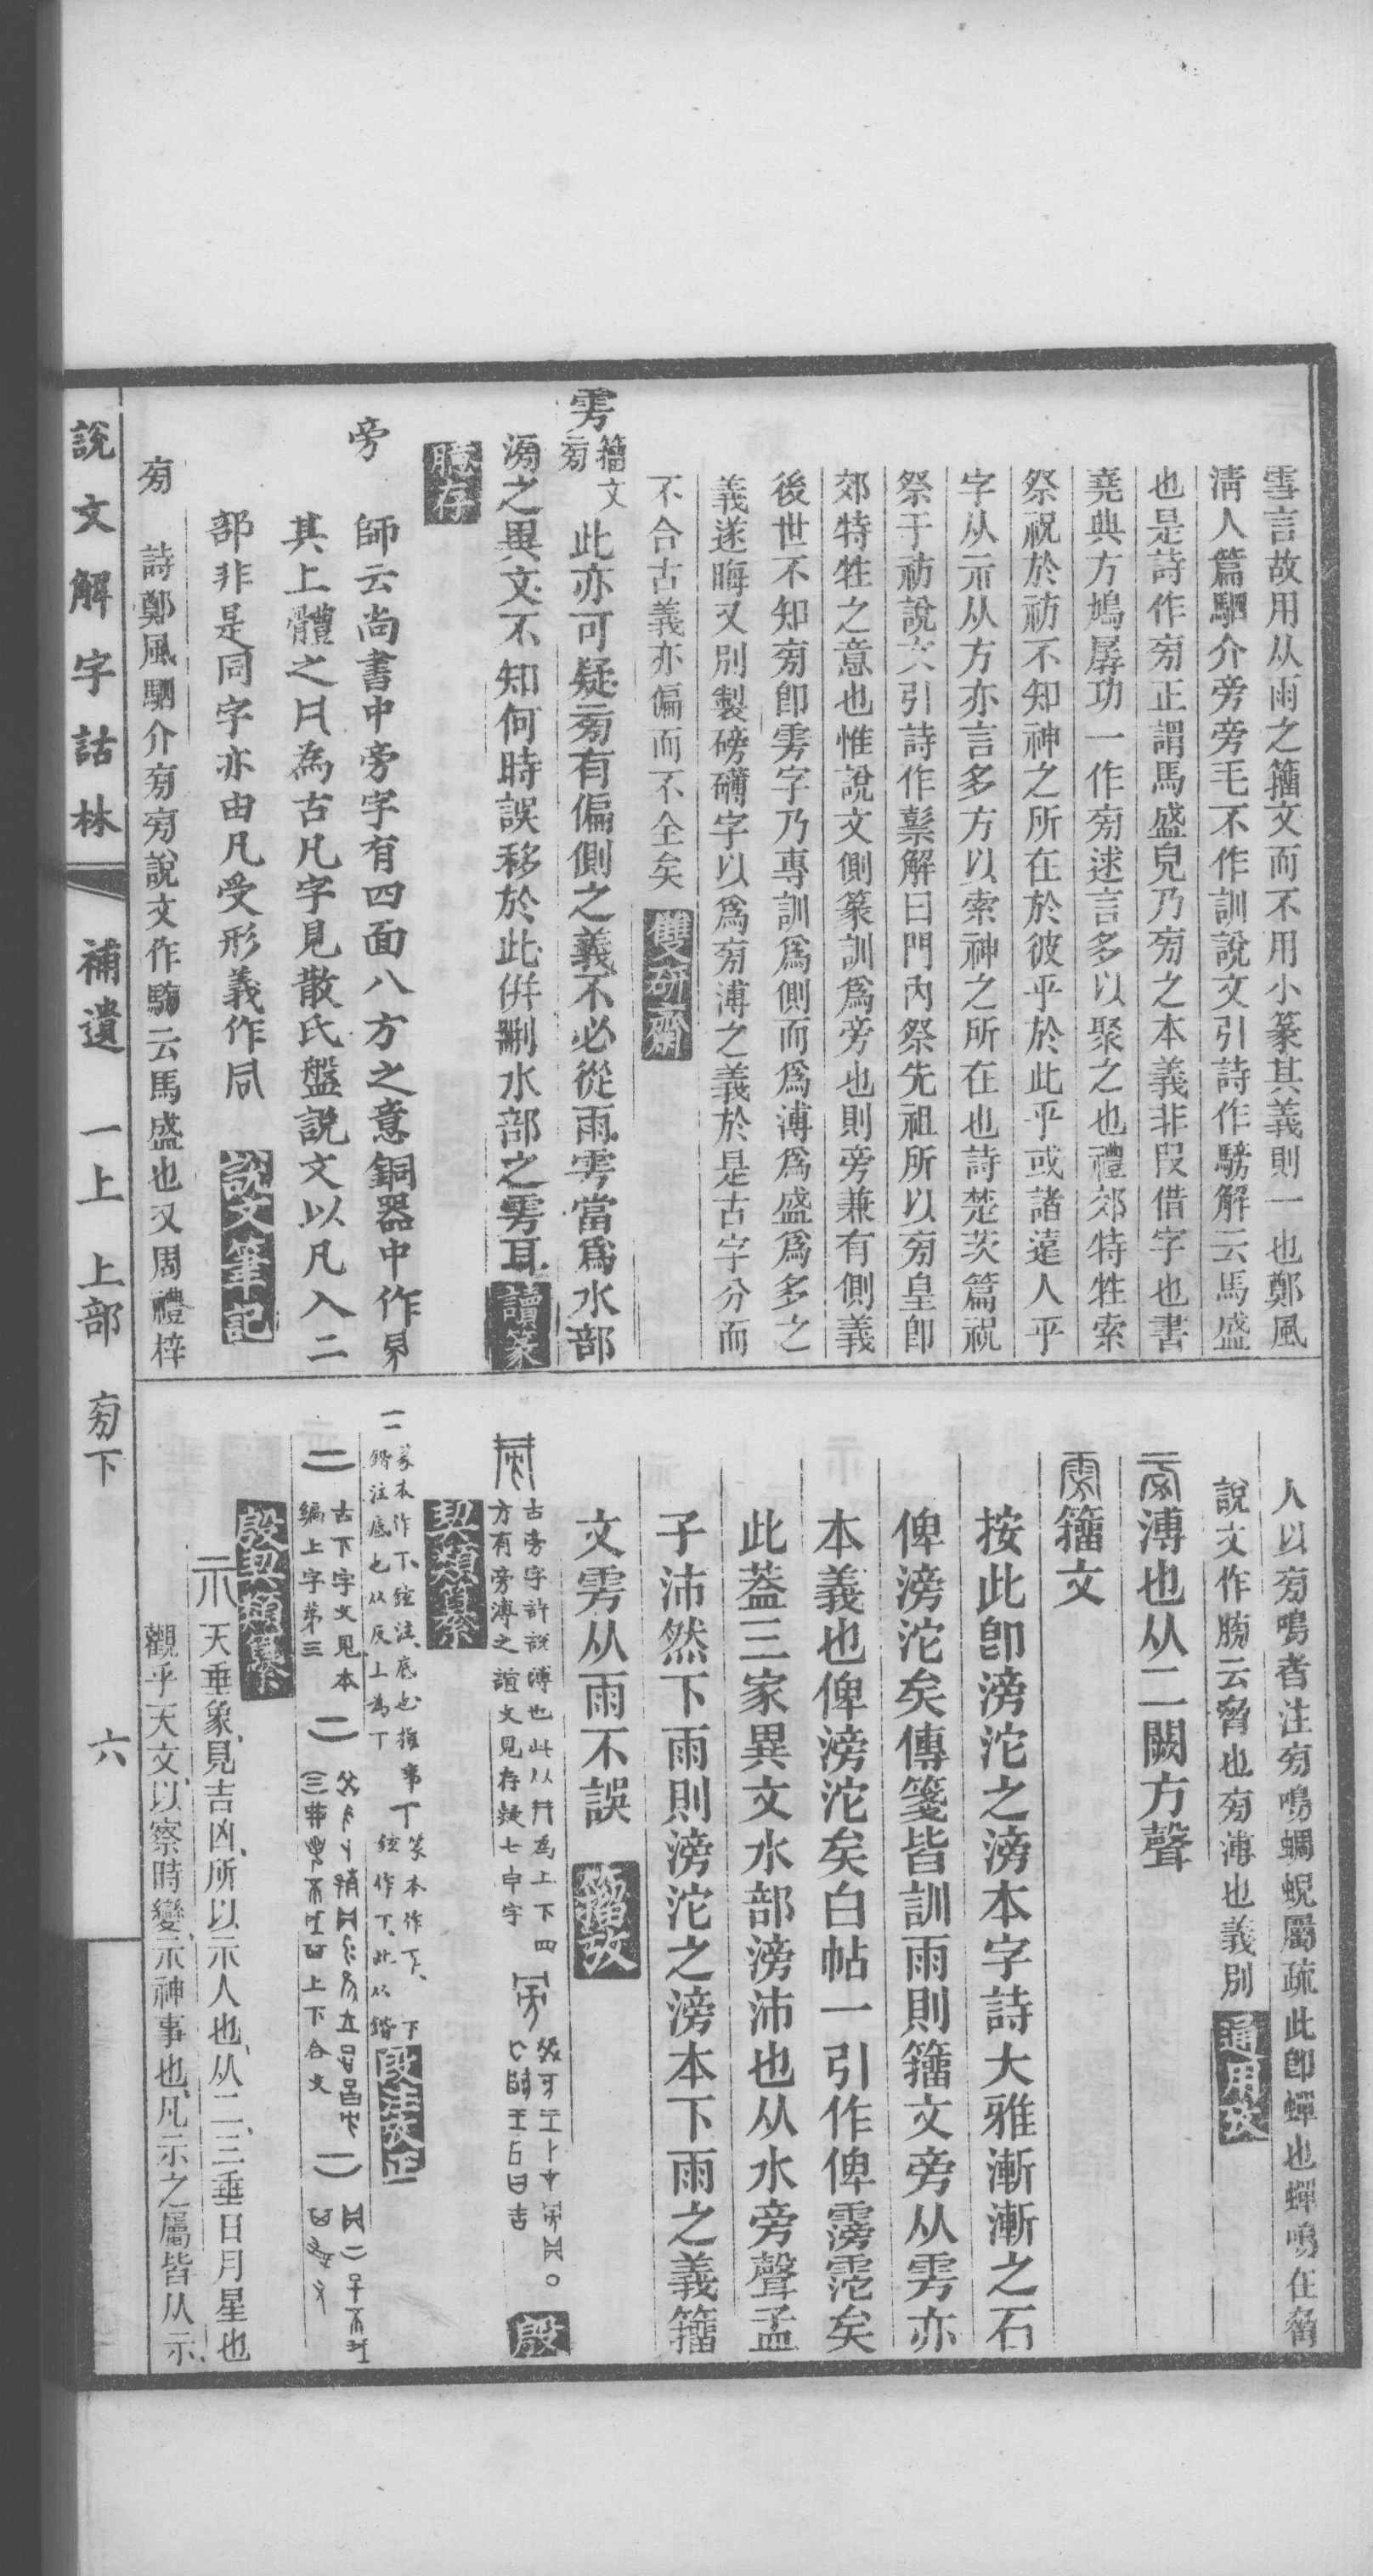 雪言故用从雨之籀文而不用小篆其義則一也鄭風
清人篇駟介旁旁毛不作訓說文引詩作騯解云馬盛
也是詩作㫄正謂馬盛皃乃㫄之本義非叚借字也書
堯典方鳩僝功一作㫄逑言多以聚之也禮郊特牲索
祭祝於祊不知神之所在於彼乎於此乎或諸遠人乎
字从示从方亦言多方以索神之所在也詩楚茨篇祝
祭于祊說文引詩作䰃解曰門內祭先祖所以㫄皇卽
郊特牲之意也惟說文側篆訓爲旁也則旁兼有側義
後世不知㫄卽雱字乃專訓爲側而爲溥爲盛爲多之
義遂晦又別製磅礴字以爲㫄溥之義於是古字分而
不合古義亦偏而不全矣 雙硏齋
雱 籀文㫄 此亦可疑㫄有偏側之義不必從雨雱當爲水部
滂之異文不知何時誤移於此併刪水部之雱耳 讀篆
臆存
旁
師云尚書中旁字有四面八方之意銅器中作
其上體之為古凡字見散氏盤說文以凡入二
部非是同字亦由凡受形義作同 說文筆記
㫄 詩鄭風駟介㫄㫄說文作騯云馬盛也又周禮梓
人以㫄鳴者注㫄鳴蜩蜺屬疏此卽蟬也蟬鳴在脅
說文作膀云脅也㫄溥也義別 通用攷
㫄溥也从二闕方聲
雱籀文
按此卽滂沱之滂本字詩大雅漸漸之石
俾滂沱矣傳箋皆訓雨則籀文旁从雱亦
本義也俾滂沱矣白帖一引作俾霶霑矣
此蓋三家異文水部滂沛也从水旁聲孟
子沛然下雨則滂沱之滂本下雨之義籀
文雱从雨不誤 籀攷
古旁字許說溥也此从为上下四
方有旁溥之誼文見存疑七申字
殷
契類纂
二 篆本作丅弦注底也指事丅篆本作下下
鍇注底也从反上為丅弦作丅此从鍇 段注攷正
二 古下字文見本
編上字弟三
上下合文
殷契類纂
示 天垂象見吉凶所以示人也从二三垂日月星也
觀乎天文以察時變示神事也凡示之屬皆从示
說文解字詁林 補遺 一上 上部 㫄下 六